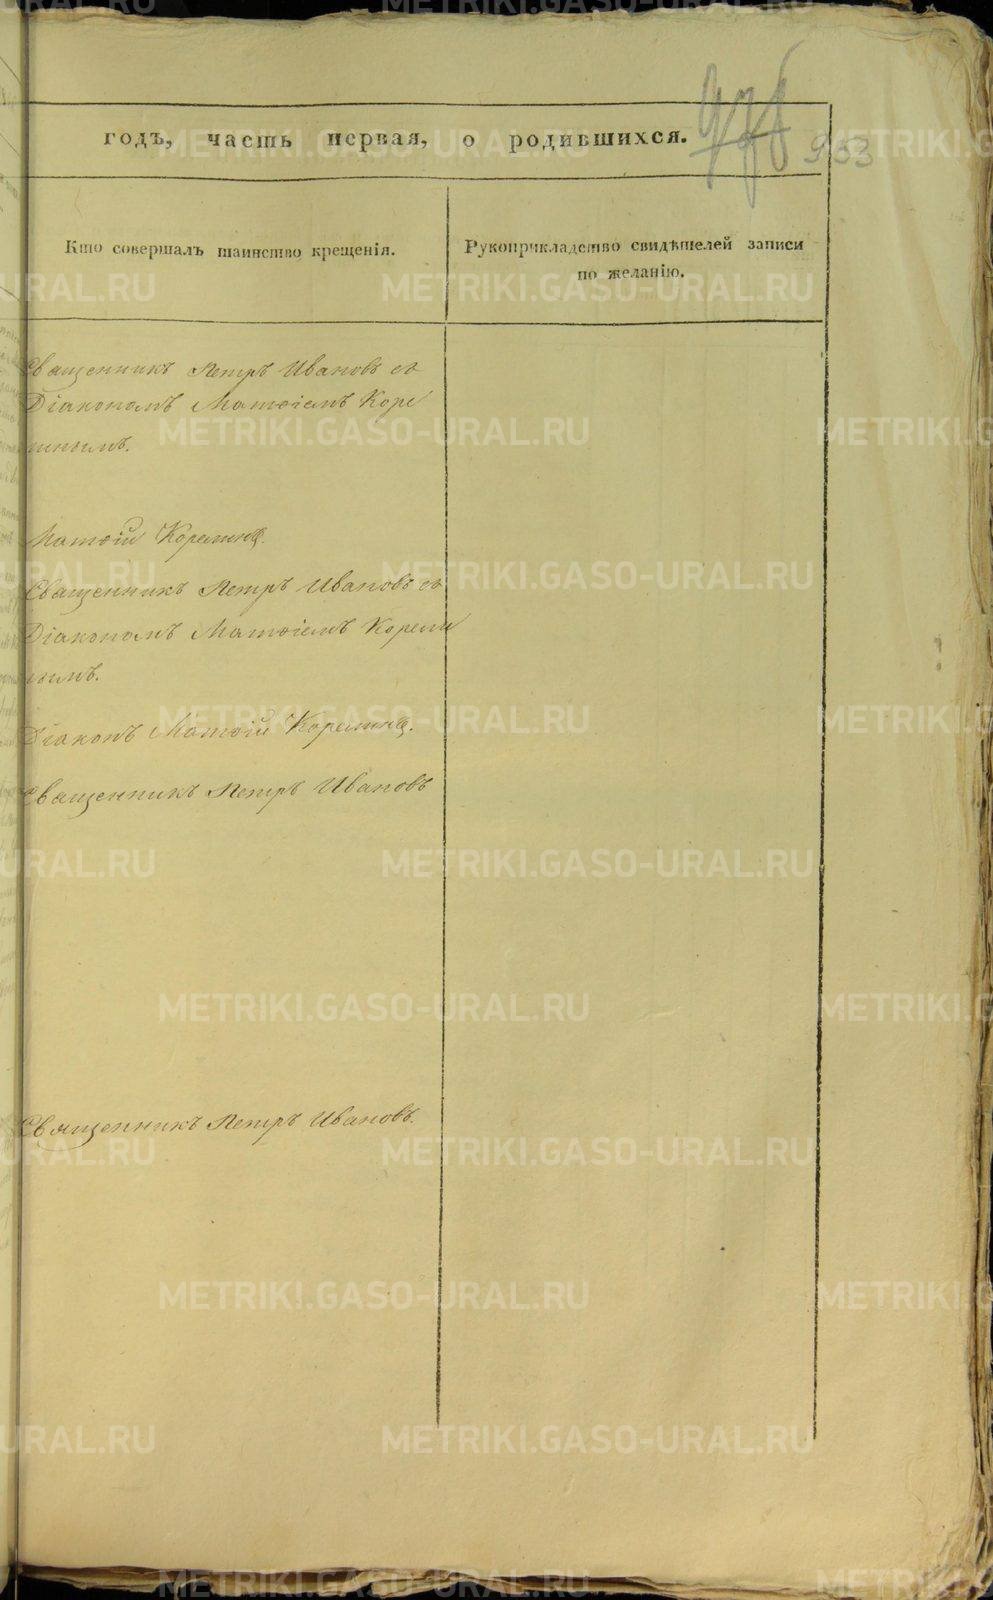 годъ, часть первая, о родившихся.
953
Кто совершалъ таинство крещенія.
Рукоприкладство свидѣтелей записи
по желанію.
Священникъ Петръ Ивановъ съ
Діакономъ Матѳіемъ Коре
линымъ.
Матѳій Корелинъ.
Священникъ Петръ Ивановъ съ
Діакономъ Матѳіемъ Корели
нымъ.
Діаконъ Матѳій Корелинъ.
Священникъ Петръ Ивановъ
Священникъ Петръ Ивановъ.
METRIKI.GASO-URAL.RU